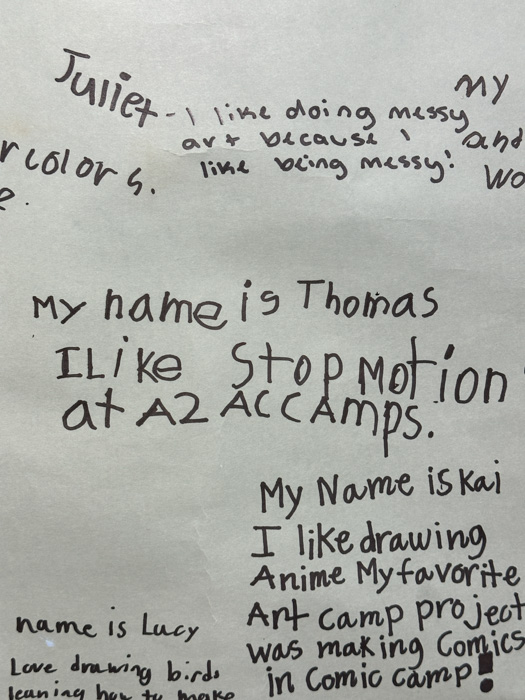 Juliet - I like doing messy
art because I
like being messy!
my
and
wo
r colors.
e.
My name is Thomas
I Like Stop Motion
at A2 AC CAmps.
My Name is Kai
I like drawing
Anime My favorite
Art camp project
was making Comics
in Comic camp!
name is Lucy
Love drawing birds
learning how to make